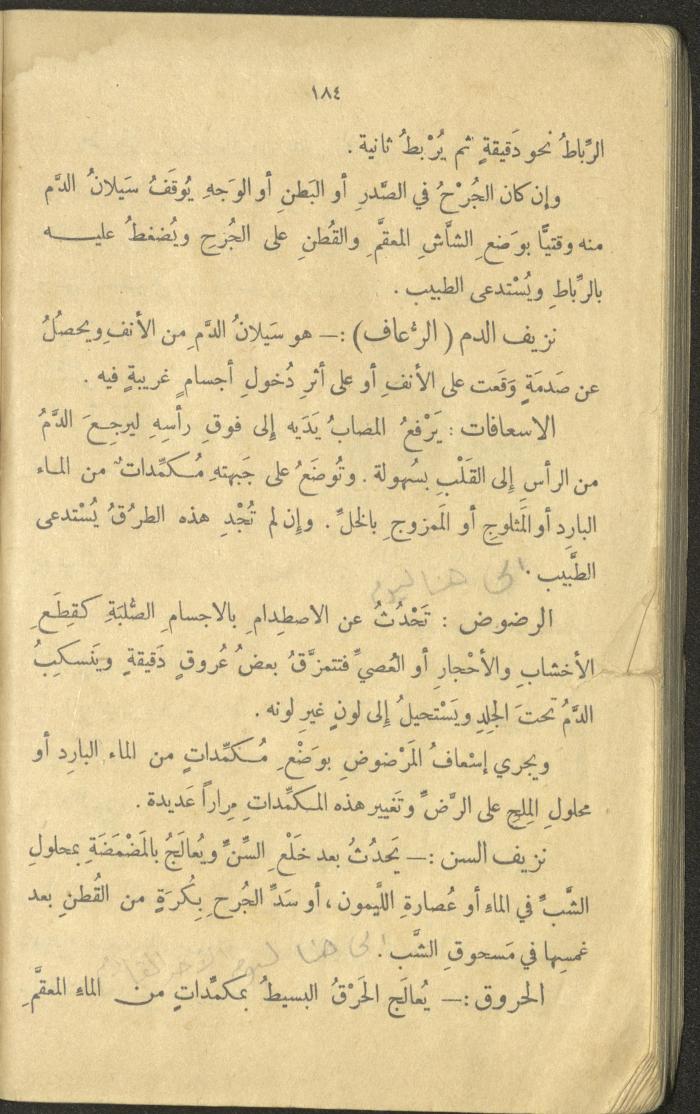 ١٨٤
الرِّباطُ نحو دَقيقةٍ ثم يُرْبطُ ثانية .
وإن كان الجُرْحُ في الصَّدرِ أو البَطنِ أو الوَجهِ يُوقَفُ سَيلانُ الدَّم
منه وقتيًّا بوَضعِ الشاَّشِ المعقَّمِ والقُطنِ على الجُرْحِ ويُضغطُ عليه
بالرِّباطِ ويُسْتدعى الطبيب .
نزيف الدم ( الرُّعاف ) :— هو سَيلانُ الدَّم من الأنفِ ويحصُلُ
عن صَدمَةٍ وَقَعت على الأنفِ أو على أثرِ دُخولِ أجسامٍ غريبةٍ فيه .
الاسعافات : يَرْفعُ المصابُ يَدَيه إلى فوقِ رأسِهِ ليرجِعَ الدَّمُ
من الرأسِ إلى القَلْبِ بسُهولة . وتُوضَعُ على جَبهتهِ مُكمِّداتٌ من الماء
البارِد أو المَثلوجِ أو الممزوجِ بالخلِّ . وإن لم تُجْدِ هذه الطرُقُ يُسْتدعى
الطَّبيب . الى هنا ليوم
الرضوض : تَحْدُثُ عن الاصطِدامِ بالاجسامِ الصُّلبَةِ كقِطَعِ
الأخشابِ والأحْجارِ أو العُصيِّ فتتمزَّقُ بعضُ عُروقٍ دَقيقةٍ ويَنسكِبُ
الدَّمُ تحتَ الجِلدِ ويَسْتحيلُ إلى لونٍ غيرِ لونه .
ويجري إسْعافُ المَرْضوضِ بوَضْعِ مُكمِّداتٍ من الماء البارِد أو
محلولِ المِلحِ على الرَّضِّ وتَغييرِ هذه المكمِّداتِ مِراراً عَديدة .
نزيف السن :— يَحدُثُ بعد خَلْعِ السِّنِّ ويُعالَجُ بالمَضْمَضَةِ بمحلولِ
الشَّبِّ في الماءِ أو عُصارةِ اللَّيمون ، أو سَدِّ الجُرحِ بِكُرَةٍ من القُطنِ بعد
غمسِها في مَسحوقِ الشَّب . الى هنا ليوم
الحروق :— يُعالَج الحَرْقُ البسيطُ بمكمِّداتٍ من الماءِ المعقَّمِ